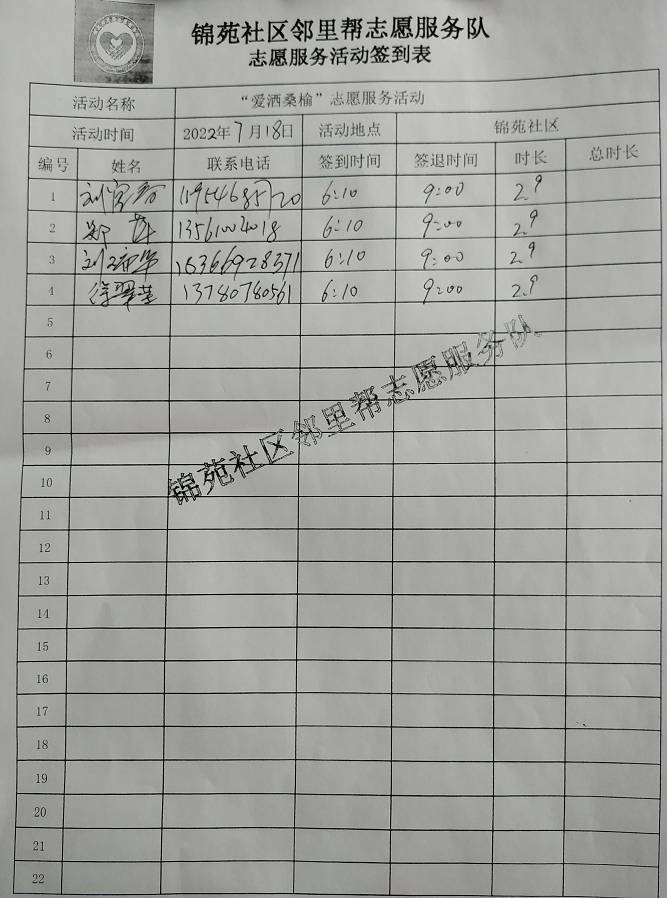 锦苑社区邻里帮志愿服务队
志愿服务活动签到表
活动名称 “爱洒桑榆”志愿服务活动
活动时间 2022年7月18日 活动地点 锦苑社区
编号 姓名 联系电话 签到时间 签退时间 时长 总时长
1 6:10 9:00 2.9
2 郑 13561002018 6:10 9:00 2.9
3 刘 15366928371 6:10 9:00 2.9
4 徐翠 13780780561 6:10 9:00 2.9
5
6
7
8
9
锦苑社区邻里帮志愿服务队
10
11
12
13
14
15
16
17
18
19
20
21
22